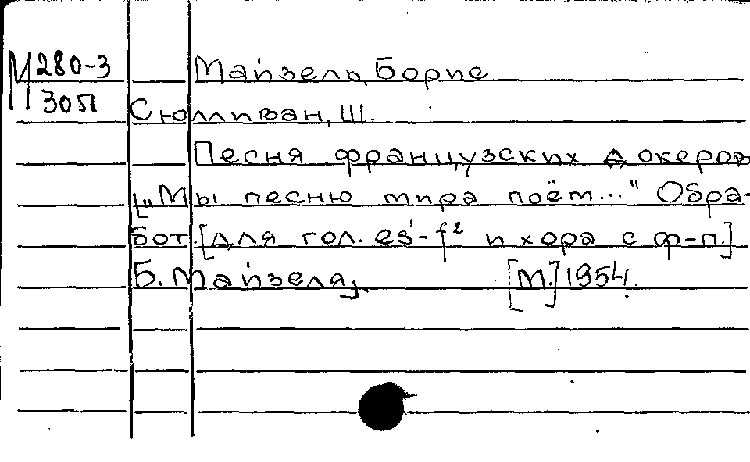 М 280-3
30511
Майзель, Борис
Сюлливан, Ш.
Песня французских докеров
[„Мы песню мира поём..." Обра-
бот. [для гол. es'-f² и хора с ф-п.]
Б. Майзеля].   [М.] 1954.